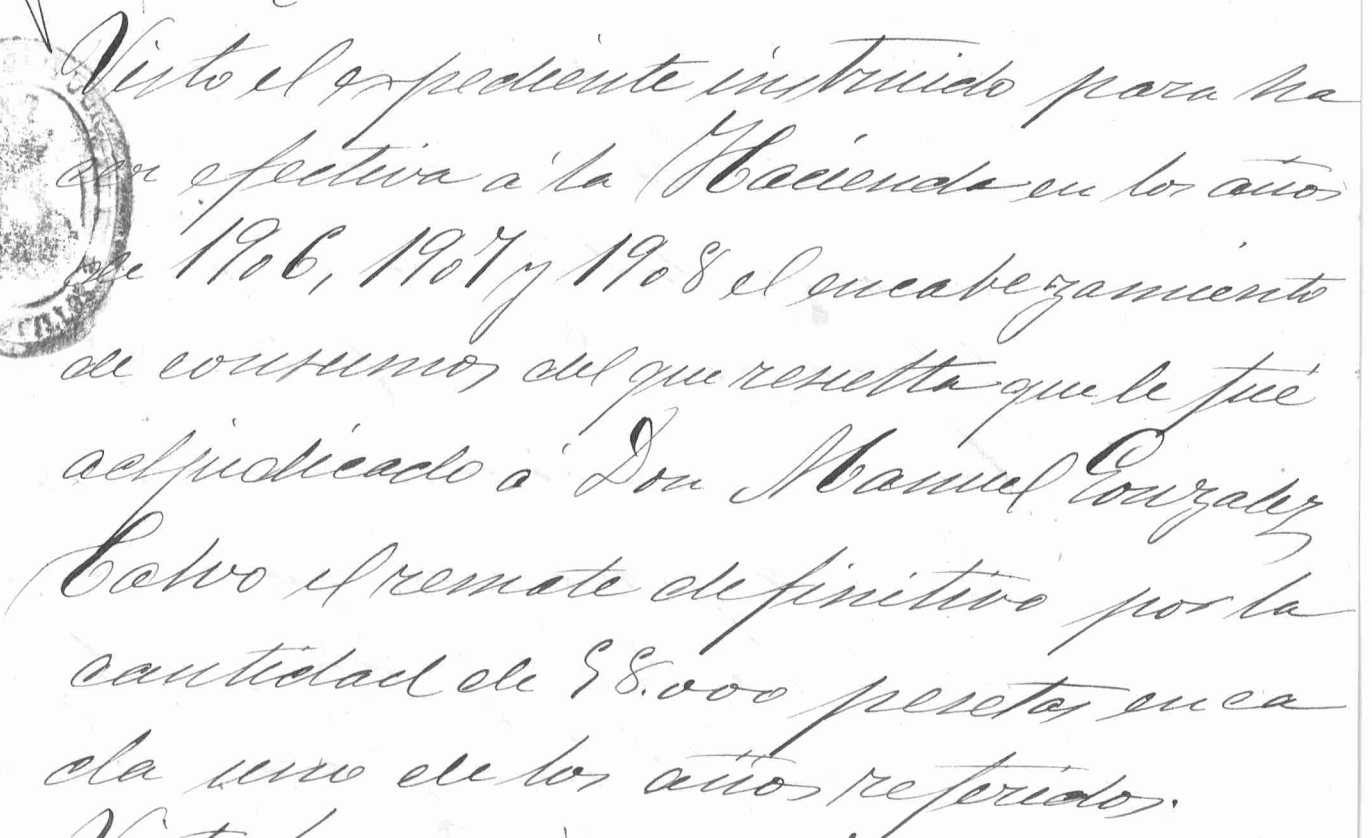 Visto el expediente instruido para ha
cer efectiva á la Hacienda en los años
de 1906, 1907 y 1908 el encabezamiento
de consumos del que resulta que le fué
adjudicado á Don Manuel Gonzalez
Calvo el remate definitivo por la
cantidad de 98.000 pesetas en ca
da uno de los años referidos.